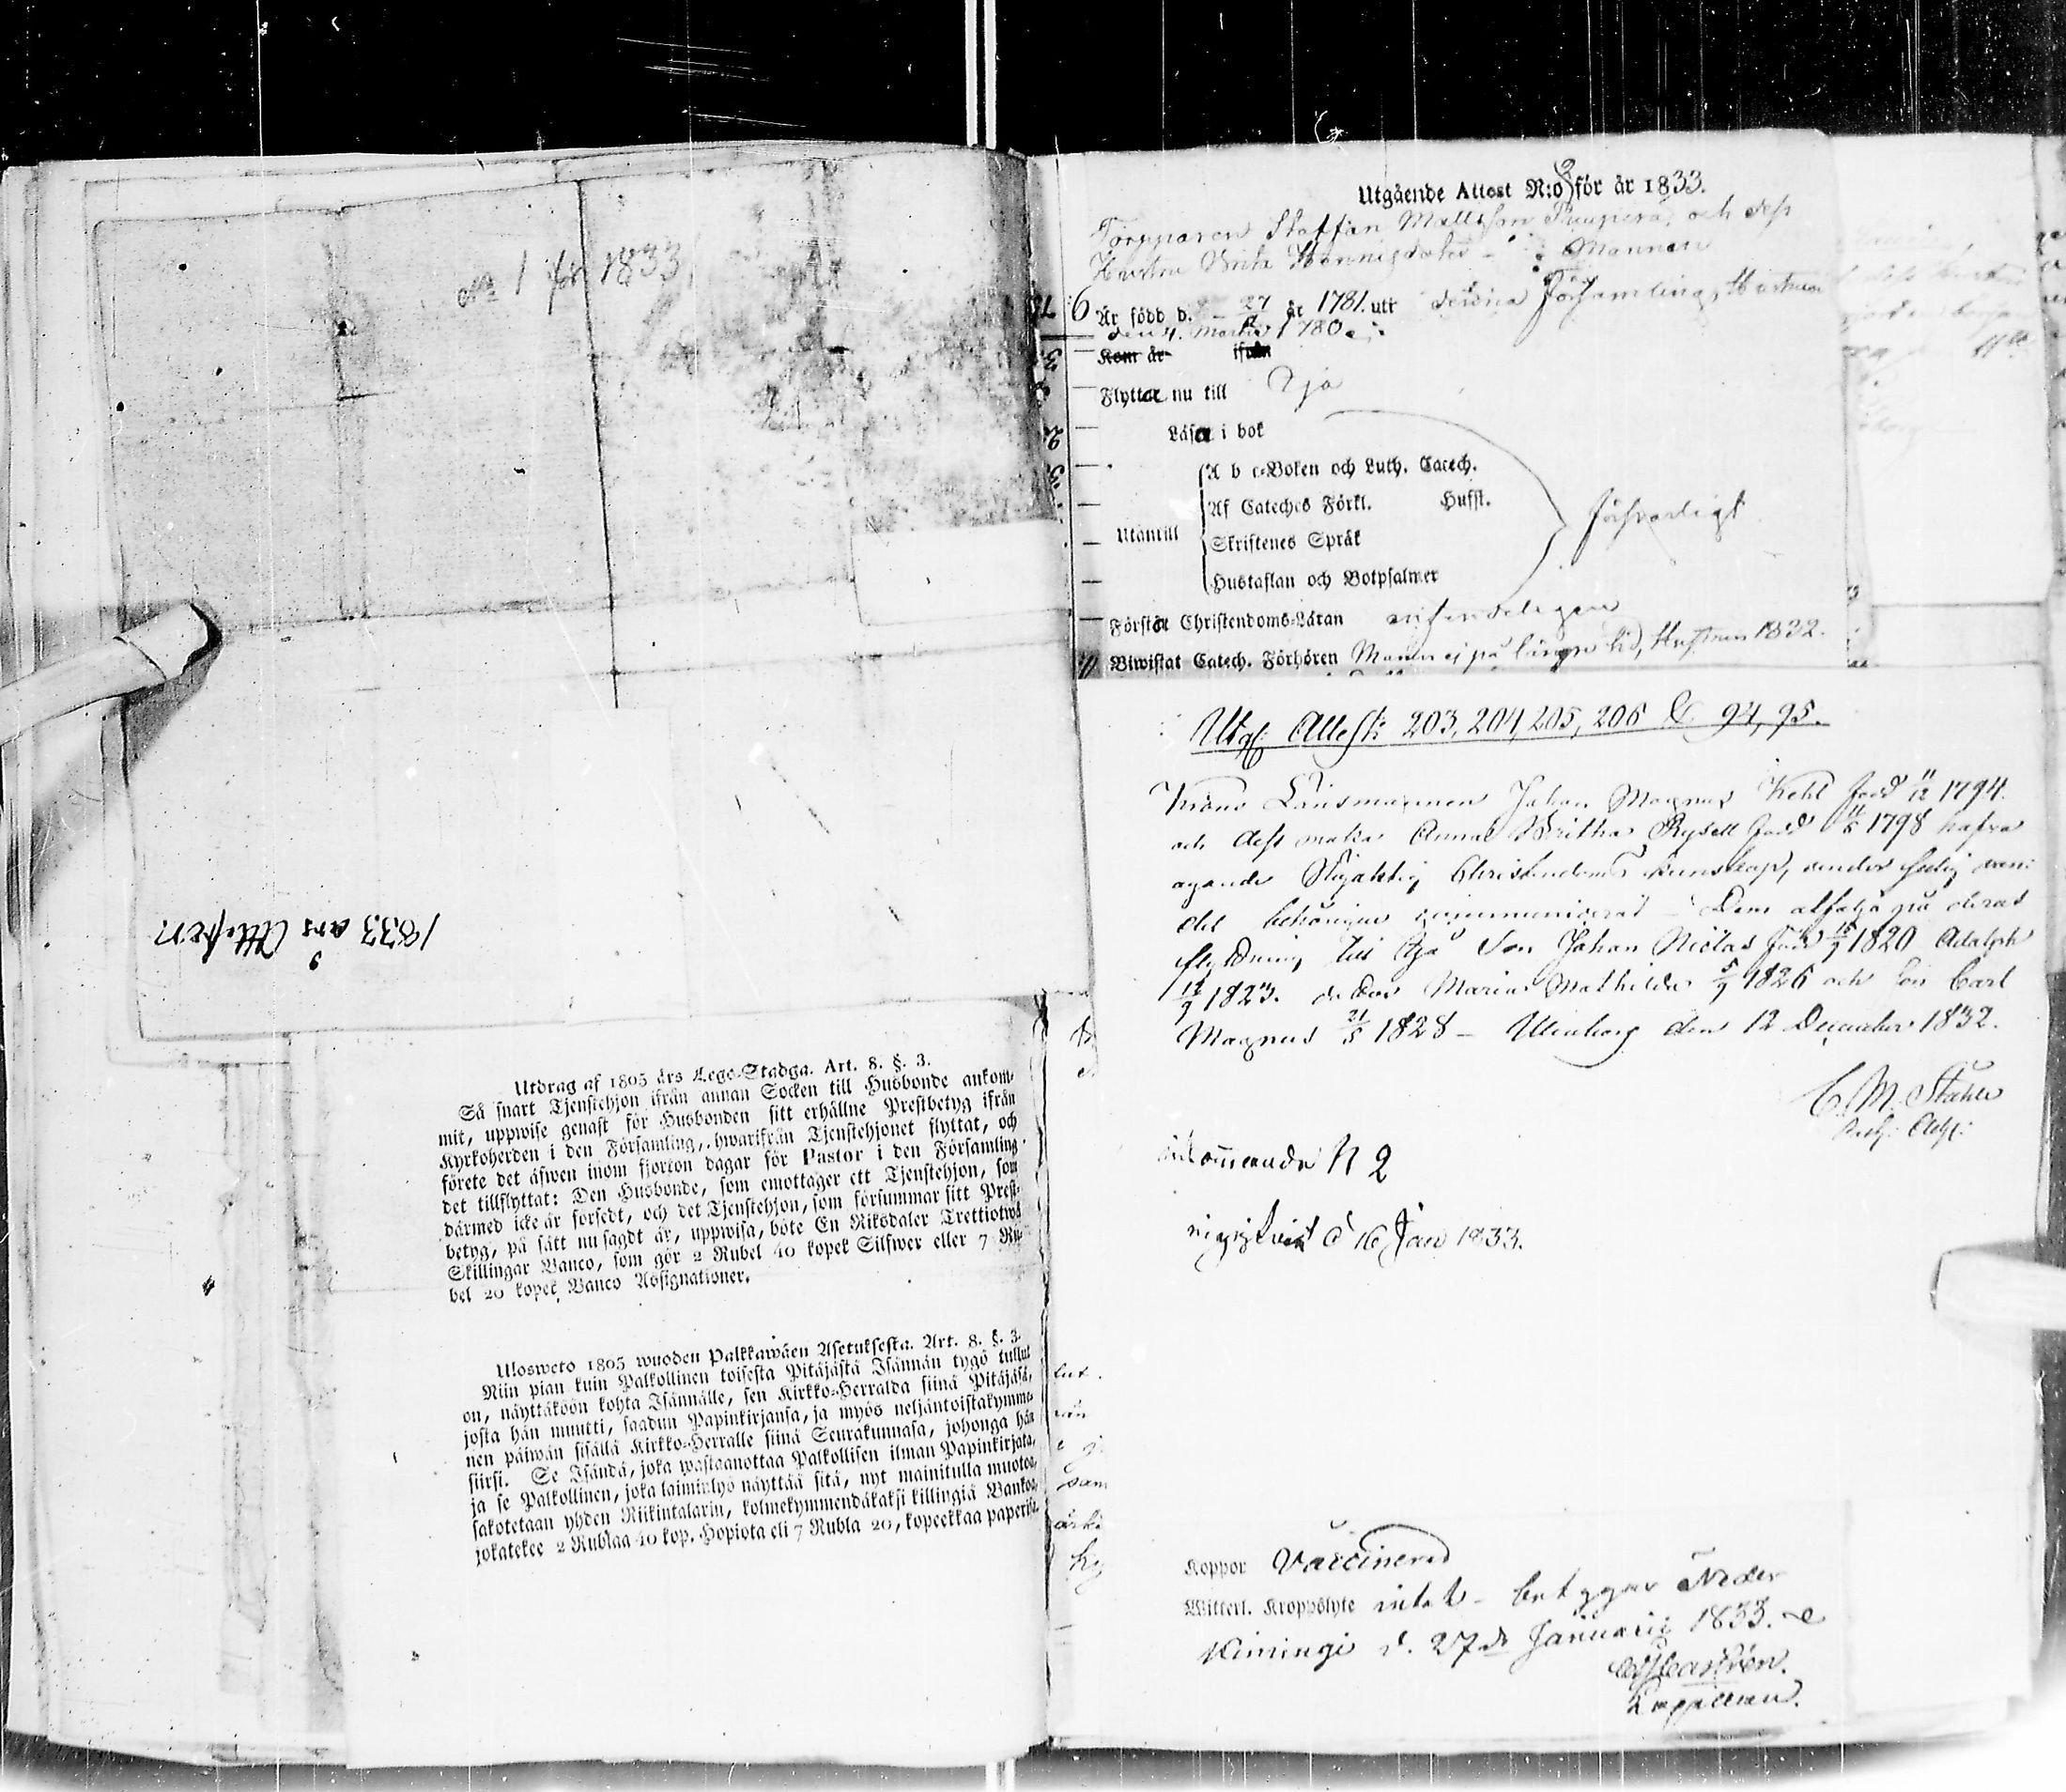 No 1 för 1833
1833 års Attester
Utdrag af 1805 års Lego-Stadga. Art. 8. §. 3.
Så snart Tjenstehjon ifrån annan Socken till Husbonde ankom-
mit, uppwise genast för Husbonden sitt erhållne Prestbetyg ifrån
Kyrkoherden i den Församling, hwarifrån Tjenstehjonet flyttat, och
förete det äfwen inom fjorton dagar för Pastor i den Församling
det tillflyttat: Den Husbonde, som emottager ett Tjenstehjon, som
därmed icke är försedt, och det Tjenstehjon, som försummar sitt Prest-
betyg, på sätt nu sagdt är, uppwisa, böte En Riksdaler Trettiotwå
Skillingar Banco, som gör 2 Rubel 40 kopek Silfwer eller 7 Ru-
bel 20 kopek Banco Assignationer.
Ulosweto 1805 wuoden Palkkawäen Asetuksesta. Art. 8. §. 3.
Niin pian kuin Palkollinen toisesta Pitäjästä Isännän tygö tullut
on, näyttäköön kohta Isännälle, sen Kirkko-Herralda siinä Pitäjäsä,
josta hän muutti, saadun Papinkirjansa, ja myös neljäntoistakymme-
nen päiwän sisällä Kirkko-Herralle siinä Seurakunnasa, johonga hän
siirsi. Se Isändä, joka wastaanottaa Palkollisen ilman Papinkirjata,
ja se Palkollinen, joka laiminlyö näyttää sitä, nyt mainitulla muotoa,
sakotetaan yhden Riikintalarin, kolmekymmendäkaksi killingiä Bankoa,
jokatekee 2 Rublaa 40 kop. Hopiota eli 7 Rubla 20, kopeekkaa paperisa.
Utgående Attest N:o 9 för år 1833.
Torpparen Staffan Mattsson och dess
Hustru Brita Henrigsdotter - Mannen
Är född d. 27 år 1781. utr denna Församling, Hustrun
den 4. Martii 1780
Kom år ifrån
Flyttar nu till Ijo
Läsa i bok
A b c-Boken och Luth. Catech.
Af Cateches Förkl. Husst.
Utantill
Skriftenes Språk
Hustaflan och Botpsalmer
försvarligt
Förstår Christendoms-Läran enfaldeligen
Biwistat Catech. Förhören Mannen ej på längre tid, Hustrun 1832.
Utg: Attest: 203, 204, 205, 206 & 94, 95.
Krono Länsmannen Johan Magnus Kehl född 11/12 1794.
och dess maka Anna Britha Rysell född 11/5 1798 hafva
ägande Nöjaktig Christendoms kunskap, under sedig van-
del behörigen communicerat - Dem åtfölja på deras
flyttning till Ijo Son Johan Niclas född 15/7 1820 Adolph
14/9 1823. dotter Maria Mathilda 5/9 1826 och son Carl
Magnus 21/5 1828 - Uleaborg den 12 December 1832.
C. M. Stähle
inkommande N 2
d 16 Jan 1833.
Koppor Vaccinerad
Witterl. Kroppslyte intet - betygar
Kiiminge d. 27de Januarii 1833.
Castrén.
Kapellan.